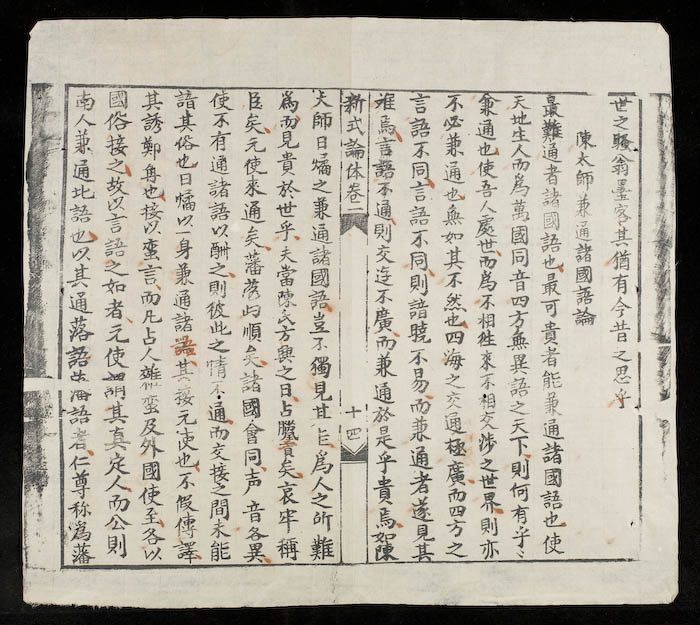 世之騷翁墨客其猶有今昔之思乎
陳太師兼通諸國語論
最難通者諸國語也最可貴者能兼通諸國語也使
天地生人而為萬國同音四方無異語之天下則何有乎
兼通也使吾人處世而為不相往來不相交涉之世界則亦
不必兼通也無如其不然也四海之交通極廣而四方之
言語不同言語不同則諳曉不易而兼通者遂見其
難焉言語不通則交迄不廣而兼通於是乎貴焉如陳
新式論体卷一
十四
太師日燏之兼通諸國語豈不獨見其為人之所難
為而見貴於世乎夫當陳氏方興之日占臘賓矣哀牢稱
臣矣元使來通矣藩蠻向順矣諸國會同声音各異
使不有通諸語以酬之則彼此之情不通而交接之間未能
諳其俗也日燏以一身兼通諸語其接元使也不假傳譯
其誘鄭角也接以蠻言而凡占人雜蠻及外國使至各以
國俗接之故以言語之如者元使謂其真定人而公則
南人兼通北語也以其通落語者仁尊称為藩